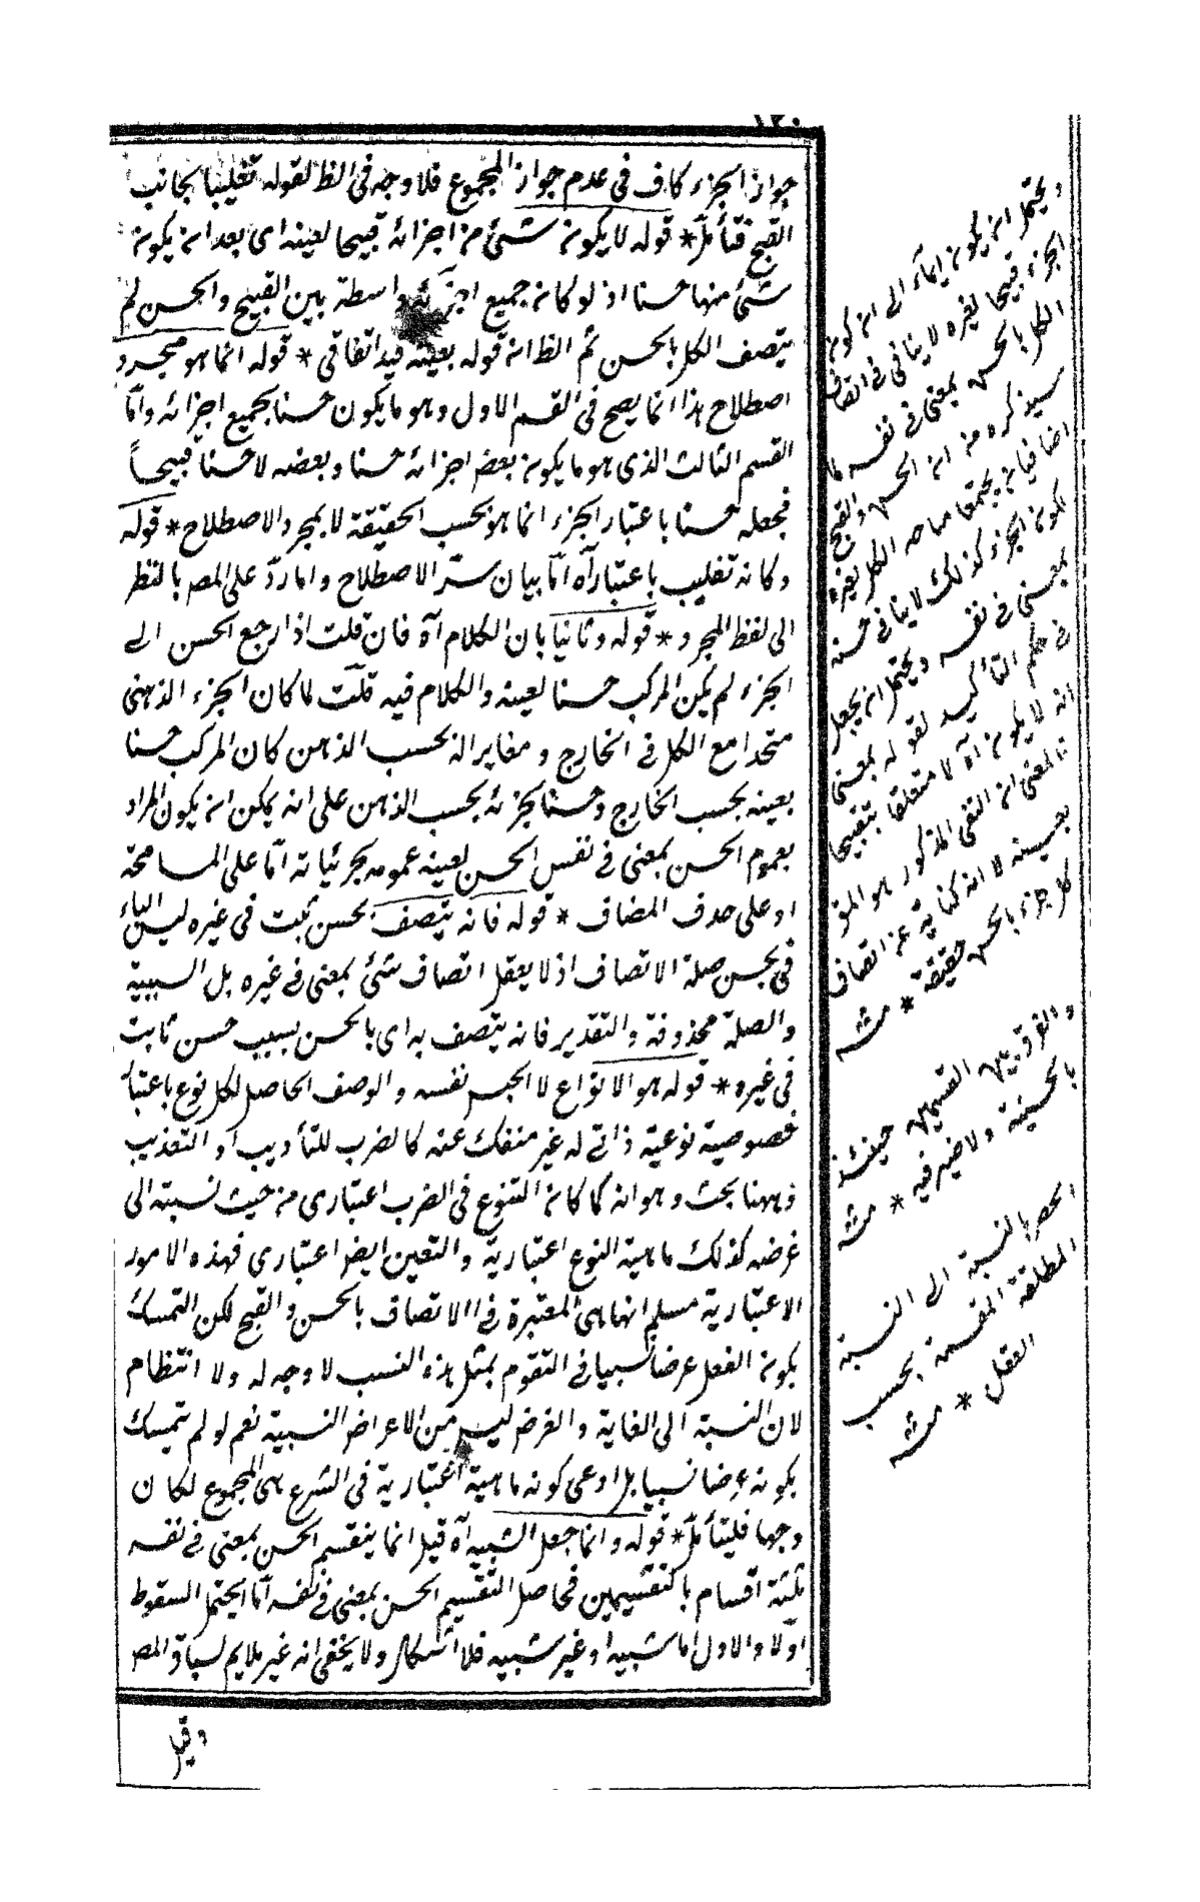 ١٢٠
جواز الجزء كاف فى عدم جواز المجموع فلا وجه فى الظ لقوله تغليبا لجانب
القبح فتأمل * قوله لا يكون شئ من اجزائه قبيحا لعينه اى بعد ان يكون
شئ منها حسنا اذ لو كان جميع اجزائه واسطة بين القبيح والحسن لم
يتصف الكل بالحسن ثم الظ ان قوله بعينه قيد اتفاقى * قوله انما هو مجرد
اصطلاح هذا انما يصح فى القسم الاول وهو ما يكون حسنا بجميع اجزائه واما
القسم الثالث الذى هو ما يكون بعض اجزائه حسنا وبعضه لا حسنا قبيحاً
فجعله حسنا باعتبار الجزء انما هو بحسب الحقيقة لا بمجرد الاصطلاح * قوله
وكانه تغليب باعتبار آه اما بيان سر الاصطلاح واما رد على المص بالنظر
الى لفظ المجرد * قوله وثانيا بان الكلام آه فان قلت اذا رجع الحسن الى
الجزء لم يكن المركب حسنا لعينه والكلام فيه قلت لما كان الجزء الذهنى
متحدا مع الكل فى الخارج ومغايرا له بحسب الذهن كان المركب حسنا
بعينه بحسب الخارج وحسنا بجزئه بحسب الذهن على انه يمكن ان يكون المراد
بعموم الحسن بمعنى فى نفس الحسن لعينه عمومه بجرئياته اما على المسامحة
او على حدف المضاف * قوله فانه يتصف بحسن ثبت فى غيره ليس الباء
فى بحسن صلة الاتصاف اذ لا يعقل اتصاف شئ بمعنى فى غيره بل السببية
والصلة محذوفة والتقدير فانه يتصف به اى بالحسن بسبب حسن ثابت
فى غيره * قوله هو الانواع لا الجس نفسه والوصف الحاصل لكل نوع باعتبار
خصوصية نوعية ذاتى له غير منفك عنه كالضرب للتأديب او التعذيب
وههنا بحث وهو انه كما كان التنوع فى الضرب اعتبارى من حيث نسبته الى
غرضه كذلك ماهية النوع اعتبارية والتعين ايض اعتبارى فهذه الامور
الاعتبارية مسلم انها هى المعتبرة فى الاتصاف بالحسن والقبح لكن التمسك
بكون الفعل عرضا نسبيا فى التقوم بمثل هذه النسب لا وجه له ولا انتظام
لان النسبة الى الغاية والغرض ليس من الاعراض النسبية نعم لو لم يتمسك
بكونه عرضا نسبيا بل ادعى كونه ماهية اعتبارية فى الشرع هى المجموع لكان
وجها فليتأمل * قوله وانما جعل الشبيه آه قيل انما ينقسم الحسن بمعنى فى نفسه
ثلثة اقسام بالتقسيمين فحاصل التقسيم الحسن بمعنى فى نفسه اما يحتمل السقوط
اولا والاول اما شبيه او غير شبيه فلا اشكال ولا يخفى انه غير ملايم لسياق المص
وقيل
ويحتمل ان يكون ايماء الى ان كون
الجزء قبيحا لغيره لا ينافى فى اتصاف
الكل بالحسن بمعنى فى نفسه لما
سيذكره من ان الحسن والقبح
اضافيان يجتمعا
كون الجزء كذلك لا ينافى حسن
بمعنى فى نفسه ويحتمل ان يجعل
فى حكم التأكيد لقوله بمعنى
انه لا يكون آه لا متعلقا بقبيحا
المعنى ان النفى المذكور هو
بعينه لا انه كناية عن اتصاف
كل جزء بالحسن حقيقة * منه
والفرق بين القسمين حينئذ
بالحسنية ولا ضير فيه * منه
الحصر بالنسبة الى النسبة
المطلقة المقسمة بحسب
العقل * منه